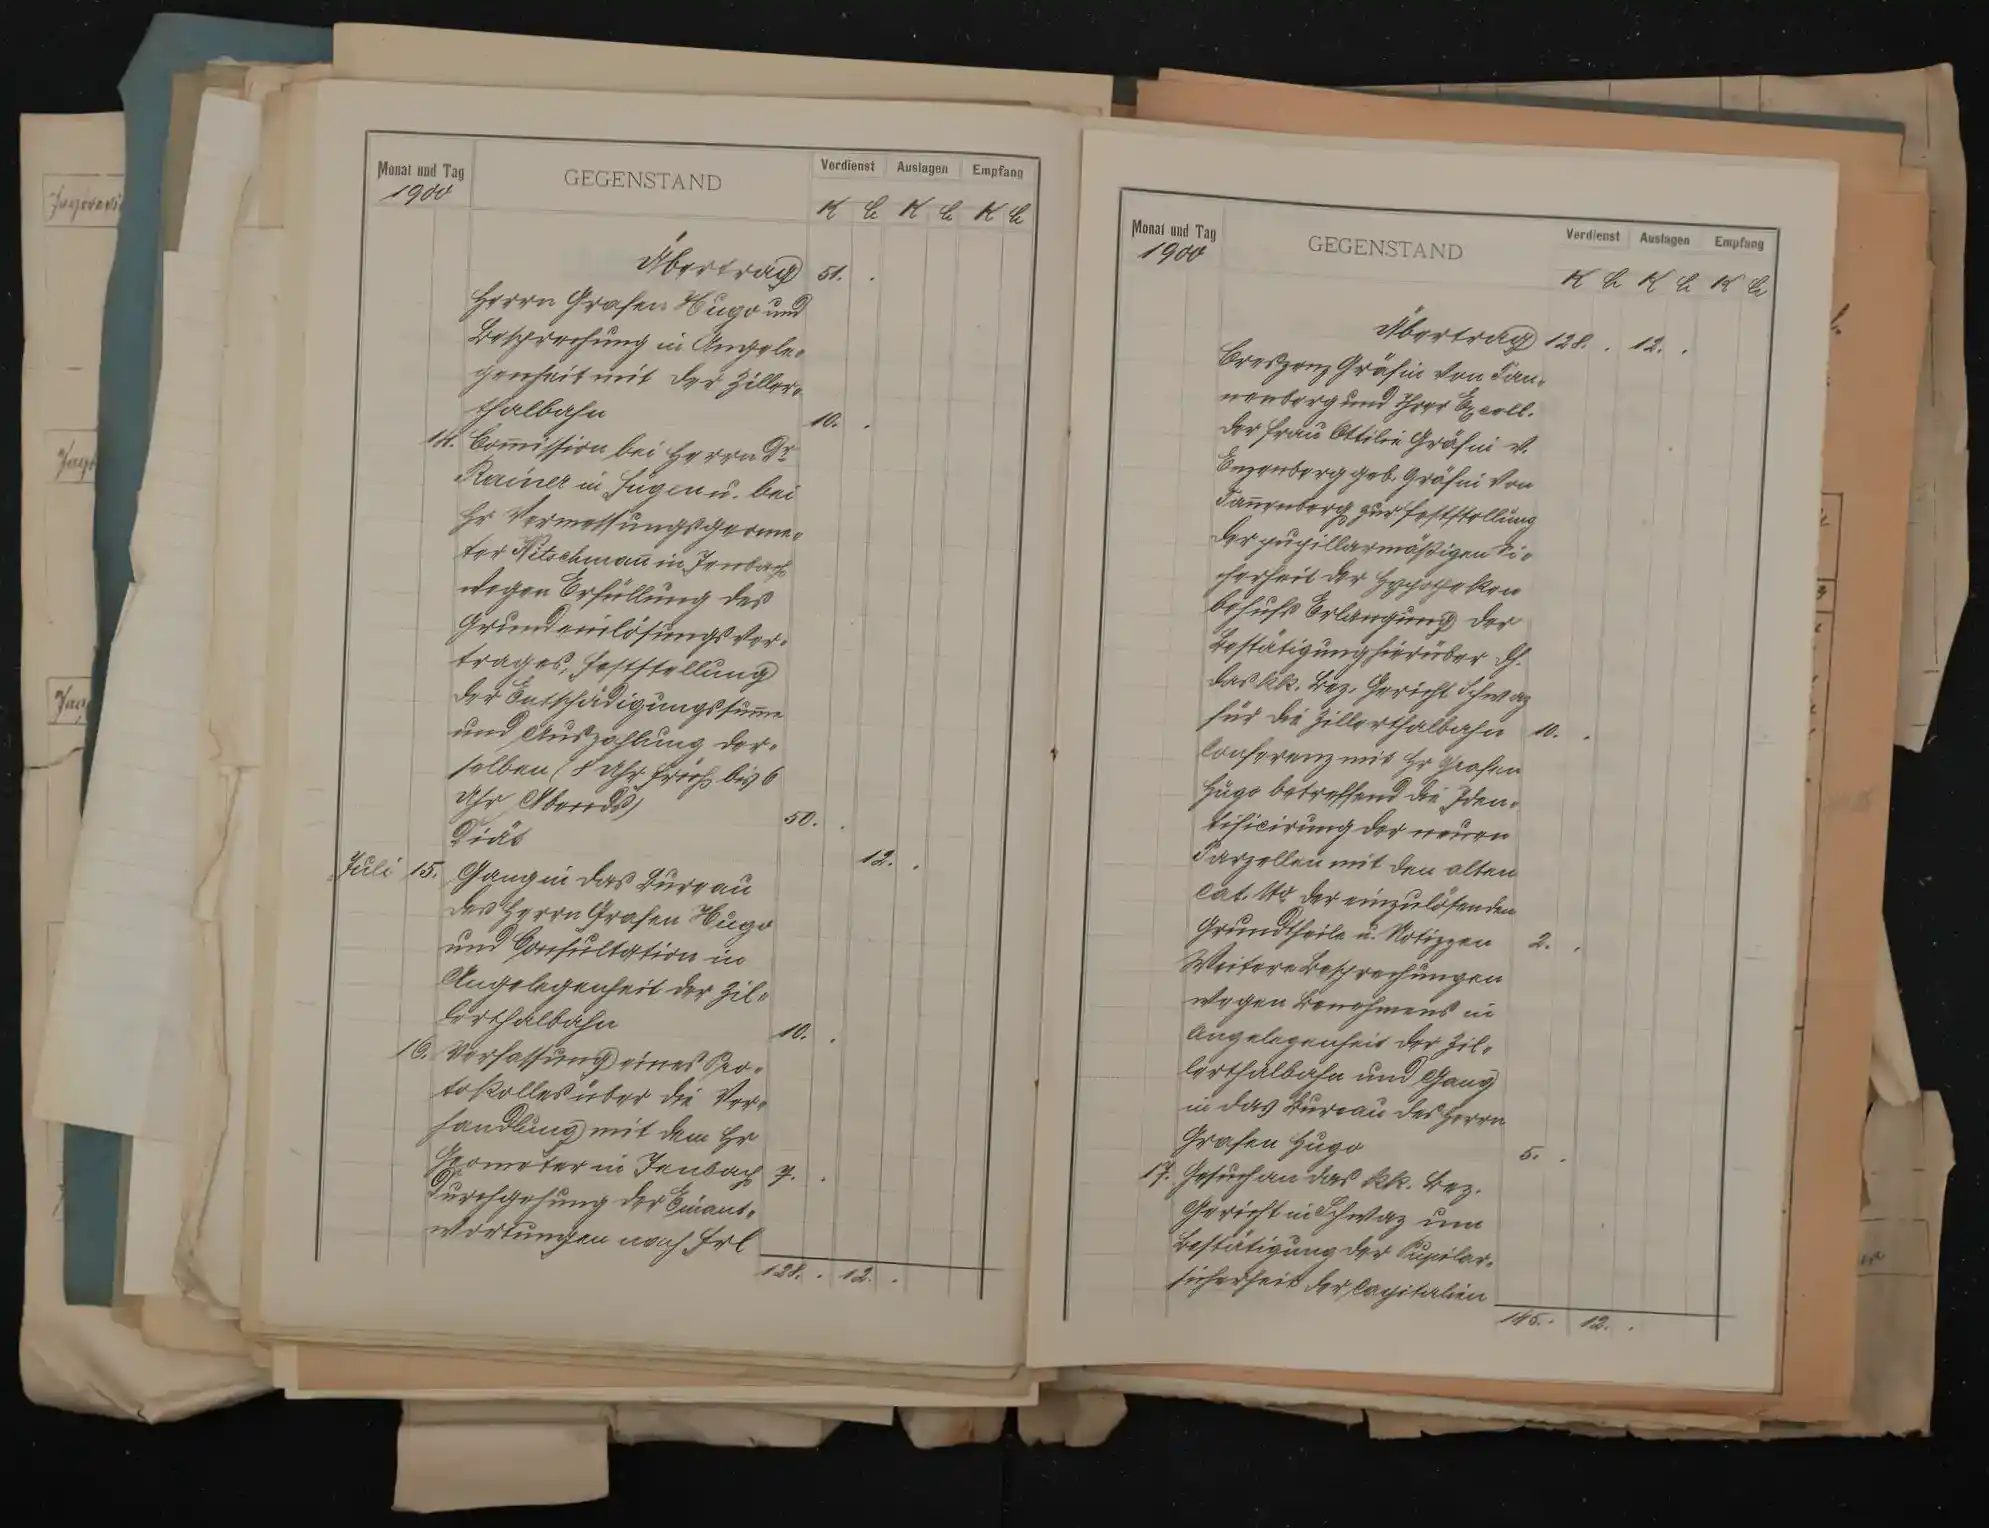 Monat und Tag
GEGENSTAND
Verdienst Auslagen Empfang
1900
K h K h K h
Übertrag 51. .
Herrn Grafen Hugo und
Besprechung in Angele-
genheit mit der Ziller-
thalbahn 10. .
14. Com̅ission bei Herrn Dr
Rainer in Fügen u. bei
Hr Vermessungsgeome-
ter Nitschman̅ in Jenbach
wegen Erfüllung des
Grundeinlösungsver-
trages, Feststellung
der Entschädigungssum̅e
und Auszahlung der-
selben (8 Uhr Früh bis 6
Uhr Abends) 50. .
Diät 12. .
Juli 15. Gang in das Bureau
des Herrn Grafen Hugo
und Consultation in
Angelegenheit der Zil-
lerthalbahn 10. .
16. Verfassung eines Pro-
tokolles über die Ver-
handlung mit dem Hr
Geometer in Jenbach 7. .
Durchgehung der Einant-
wortungen nach Frl
128. . 12. .
Monat und Tag
GEGENSTAND
Verdienst Auslagen Empfang
1900
K h K h K h
Übertrag 128. . 12. .
Creszenz Gräfin von Tan-
nenberg und Ihrer Excell.
der Frau Ottilie Gräfin v.
Enzenberg geb. Gräfin von
Tan̅enberg zur Feststellung
der pupillarmäßigen Si-
cherheit der Hypotheken
behufs Erlangung der
Bestätigung hierüber dh.
das kk. Bez. Gericht Schwaz
für die Zillerthalbahn 10. .
Conferenz mit Hr Grafen
Hugo betreffend die Iden-
tificirung der neuen
Parzellen mit den alten
Cat. No der einzulösenden
Grundtheile u. Notizzen 2. .
Weitere Besprechungen
wegen Benehmens in
Angelegenheit der Zil-
lerthalbahn und Gang
in das Bureau des Herrn
Grafen Hugo 5. .
17. Gesuch an das kk. Bez.
Gericht in Schwaz um
Bestätigung der Pupilar-
sicherheit der Capitalien
145. . 12. .